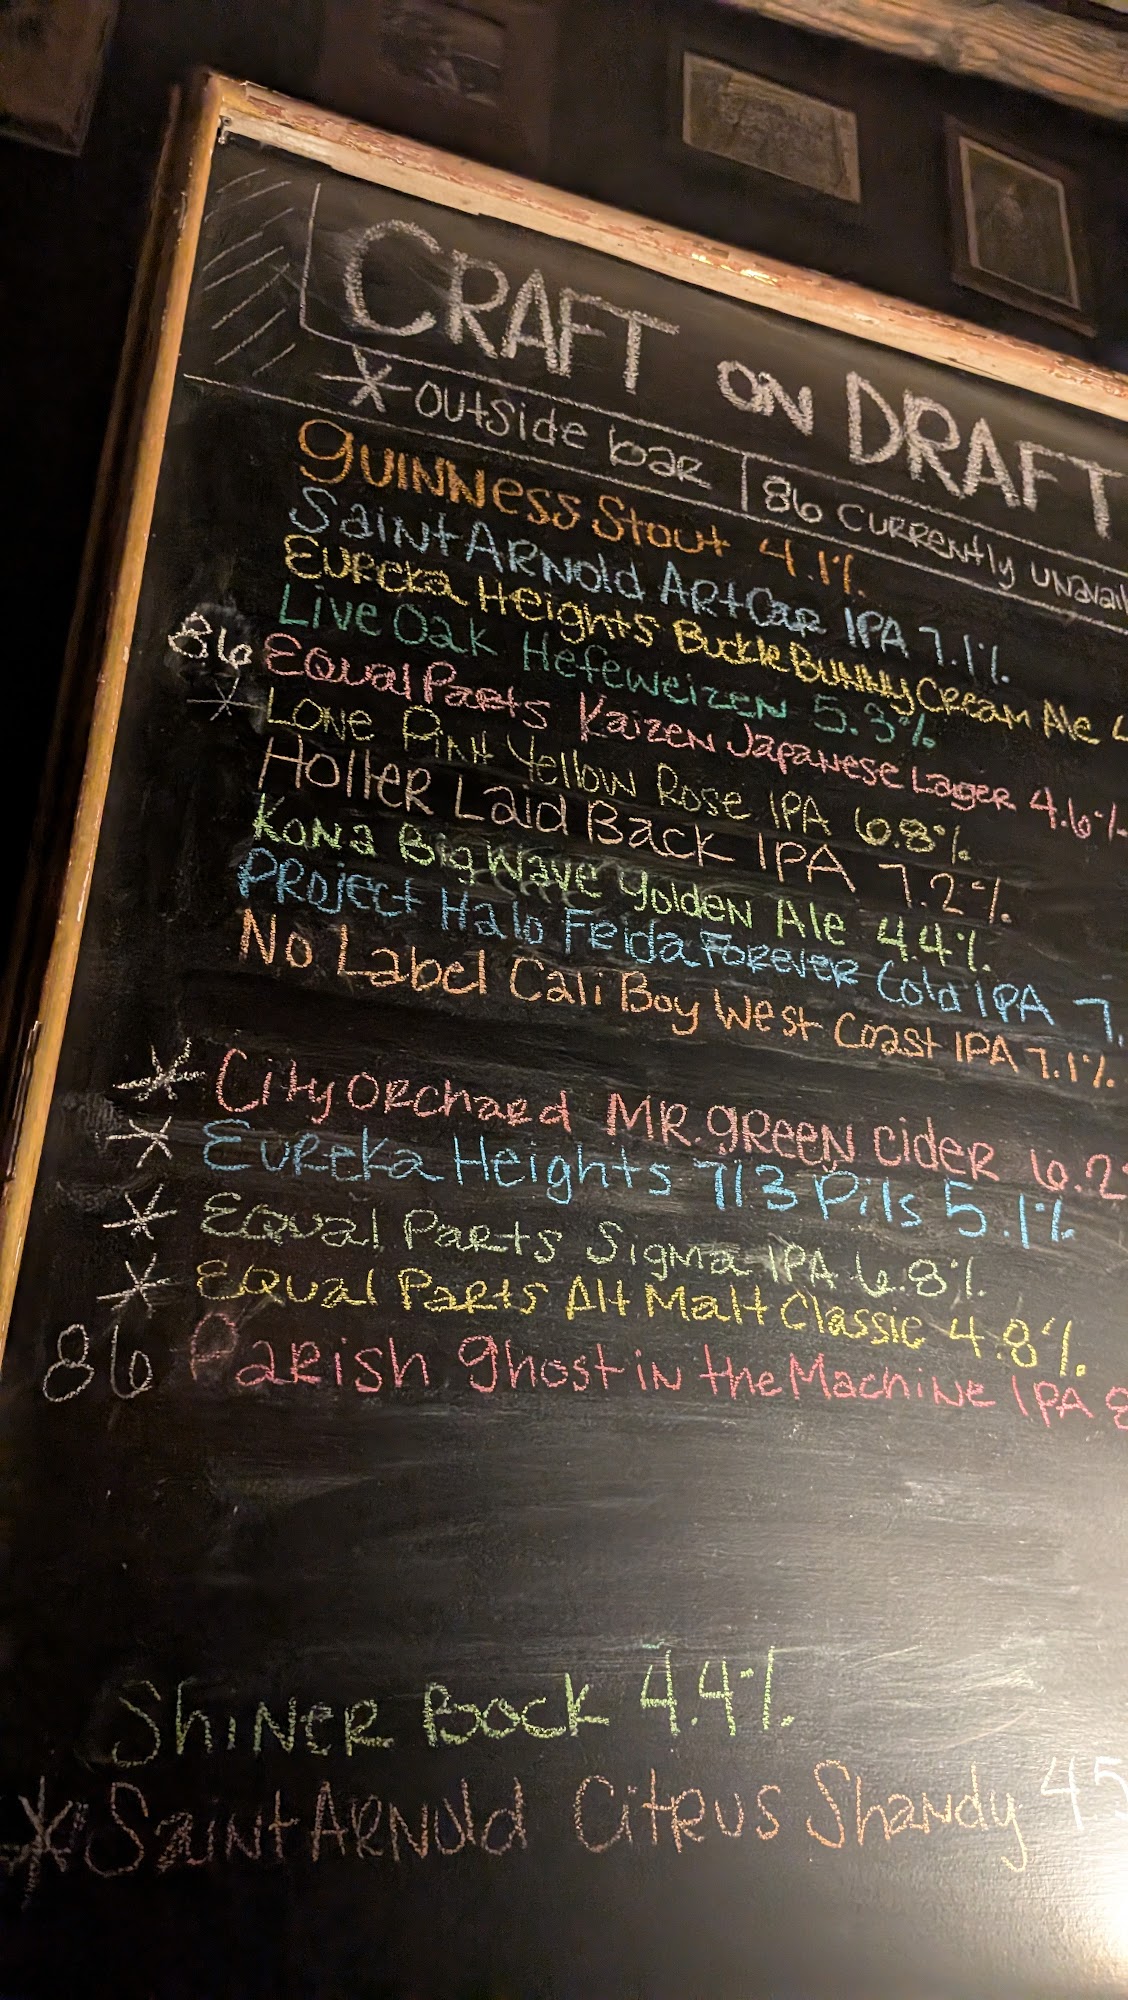 CRAFT ON DRAFT
* outside bar | 86 CURRENTLY UNAVAIL
GUINNESS Stout 4.1%
Saint ARNOLD ARt CAR IPA 7.1%
EUREKA Heights BUCKLE BUNNY CREAM Ale
Live Oak Hefeweizen 5.3%
86 EQUAL PARTS Kaizen Japanese Lager 4.6%
* LONE PINT Yellow Rose IPA 6.8%
Holler Laid Back IPA 7.2%
Kona Big Wave Golden Ale 4.4%
PROJECT Halo FOREVER Cold IPA 7.
No Label Cali Boy West Coast IPA 7.1%
* City ORCHARD MR. GREEN Cider 6.2
* EUREKA Heights 713 Pils 5.1%
* EQUAL PARTS Sigma IPA 6.8%
* EQUAL PARTS Alt Malt Classic 4.8%
86 PARISH Ghost in the Machine IPA 8
ShiNER BOCK 4.4%
* Saint ARNOLD CitRUS Shandy 45